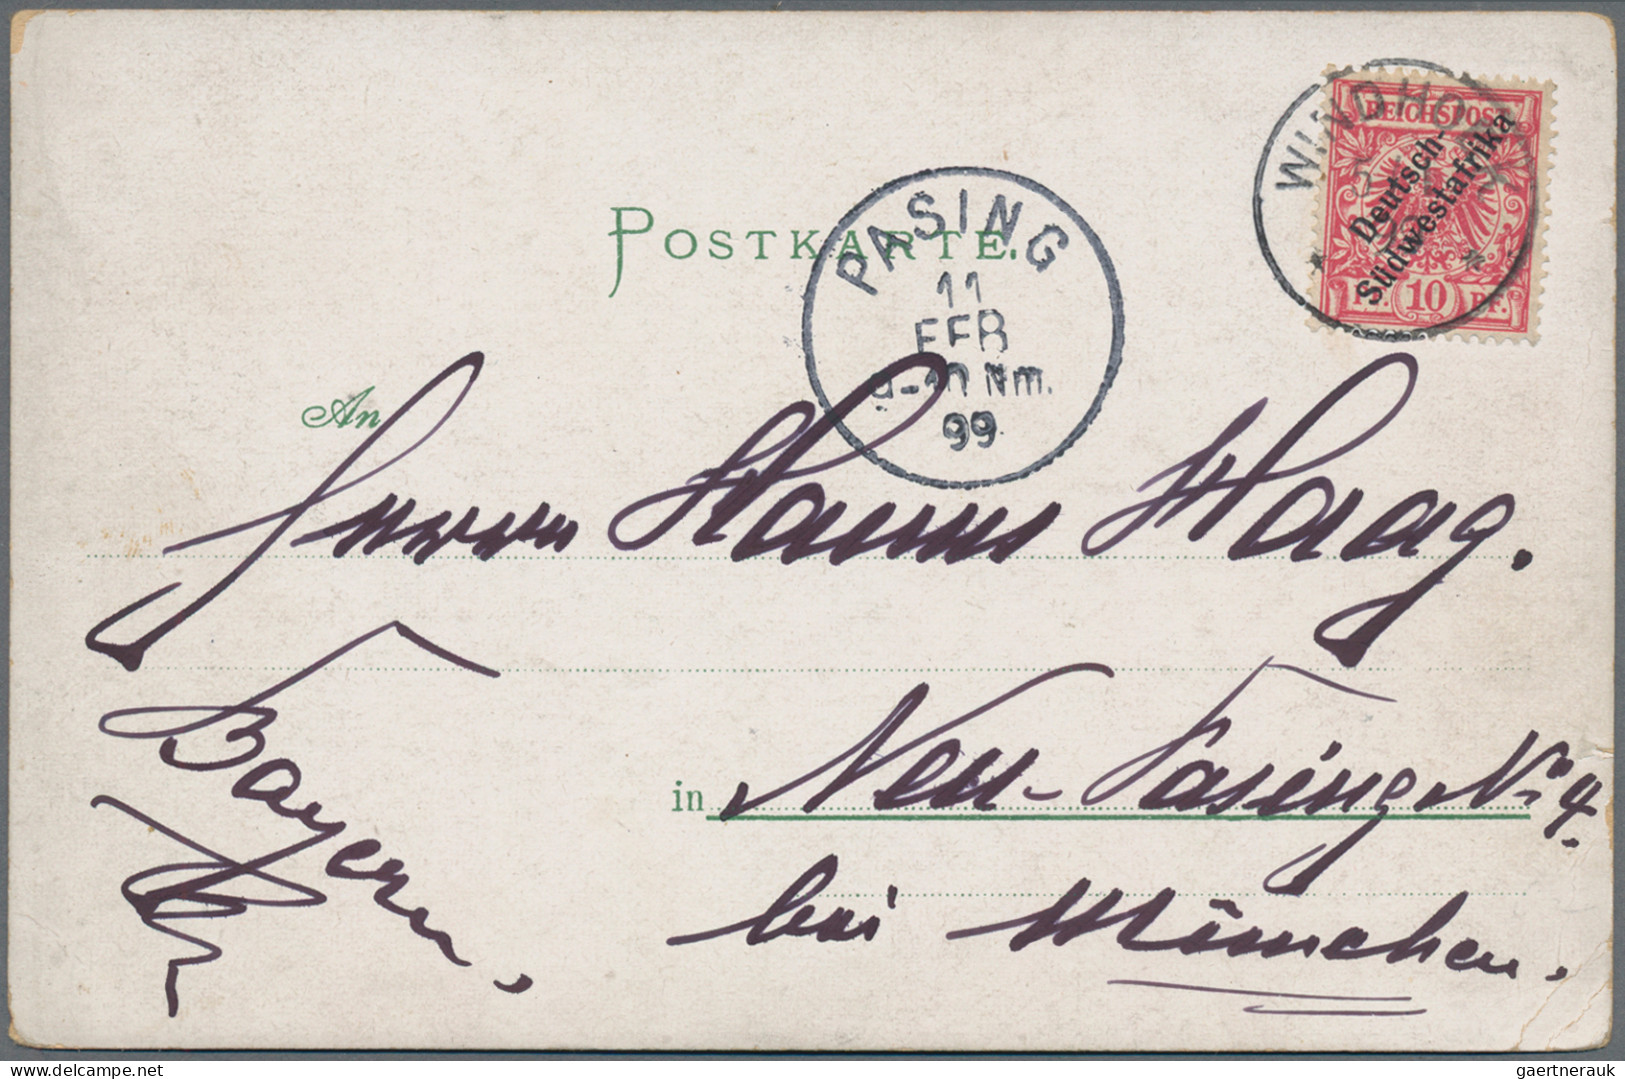 REICHSPOST
Deutsch-
Südwestafrika
PF. 10 PF.
WINDHOEK
POSTKARTE.
PASING
11
FEB
9-10 Nm.
99
An
Herrn Hanns Haag.
in Neu-Pasing No 4.
bei München.
Bayern.
delcampe.net
gaertnerauk